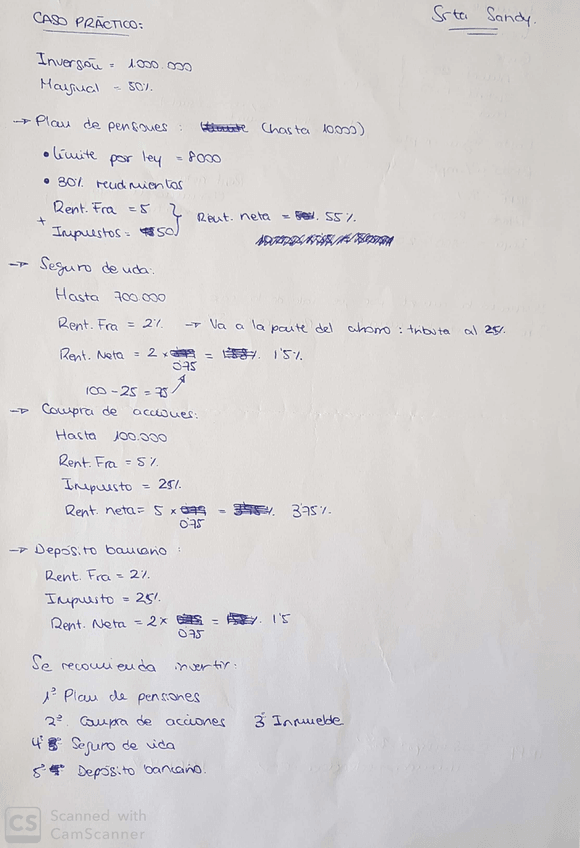 CASO PRÁCTICO:
Srta Sandy.
Inversión = 1.000.000
Marginal = 50%
→ Plan de pensiones : (hasta 10.000)
• límite por ley = 8000
• 30% rendimientos
Rent. Fra = 5
+ Impuestos = 50 } Rent. neta = 55%
→ Seguro de vida:
Hasta 700.000
Rent. Fra = 2% → Va a la parte del ahorro : tributa al 25%
Rent. Neta = 2 × 0'75 = 1'5%
100 - 25 = 75
→ Compra de acciones:
Hasta 100.000
Rent. Fra = 5%
Impuesto = 25%
Rent. neta = 5 × 0'75 = 3'75%
→ Depósito bancario :
Rent. Fra = 2%
Impuesto = 25%
Rent. Neta = 2 × 0'75 = 1'5
Se recomienda invertir:
1º Plan de pensiones
2º. Compra de acciones 3º Inmueble
4º Seguro de vida
5º Depósito bancario.
CS Scanned with
CamScanner